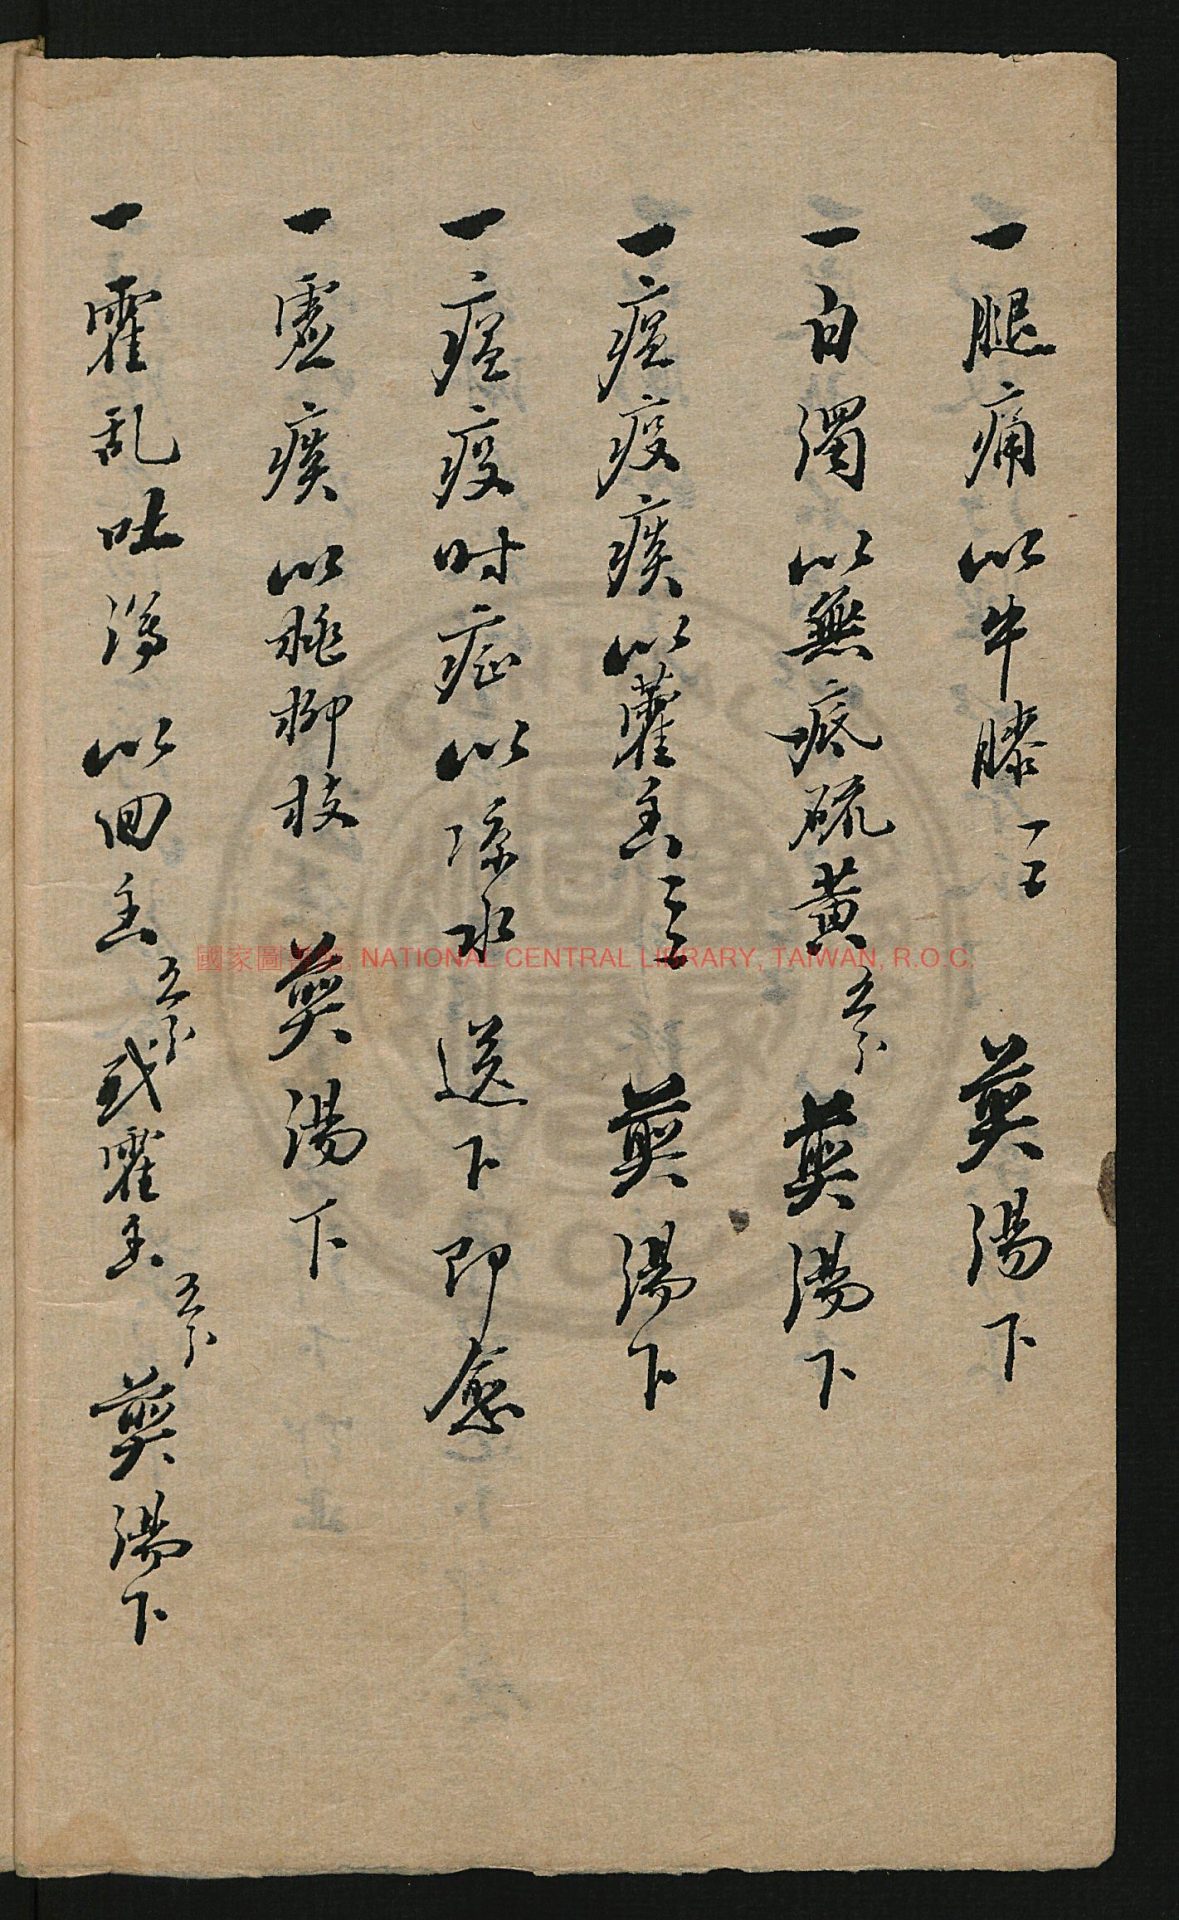 一腿痛以牛膝一工 煎湯下
一白濁以無痕硫黄五分煎湯下
一瘟疫痰以藿香二工 煎湯下
一瘟疫时症以凉水 送下即愈
一虚痰以桃柳枝 煎湯下
一霍乱吐瀉以回香五分或霍香五分 煎湯下
國家圖書館, NATIONAL CENTRAL LIBRARY, TAIWAN, R.O.C.